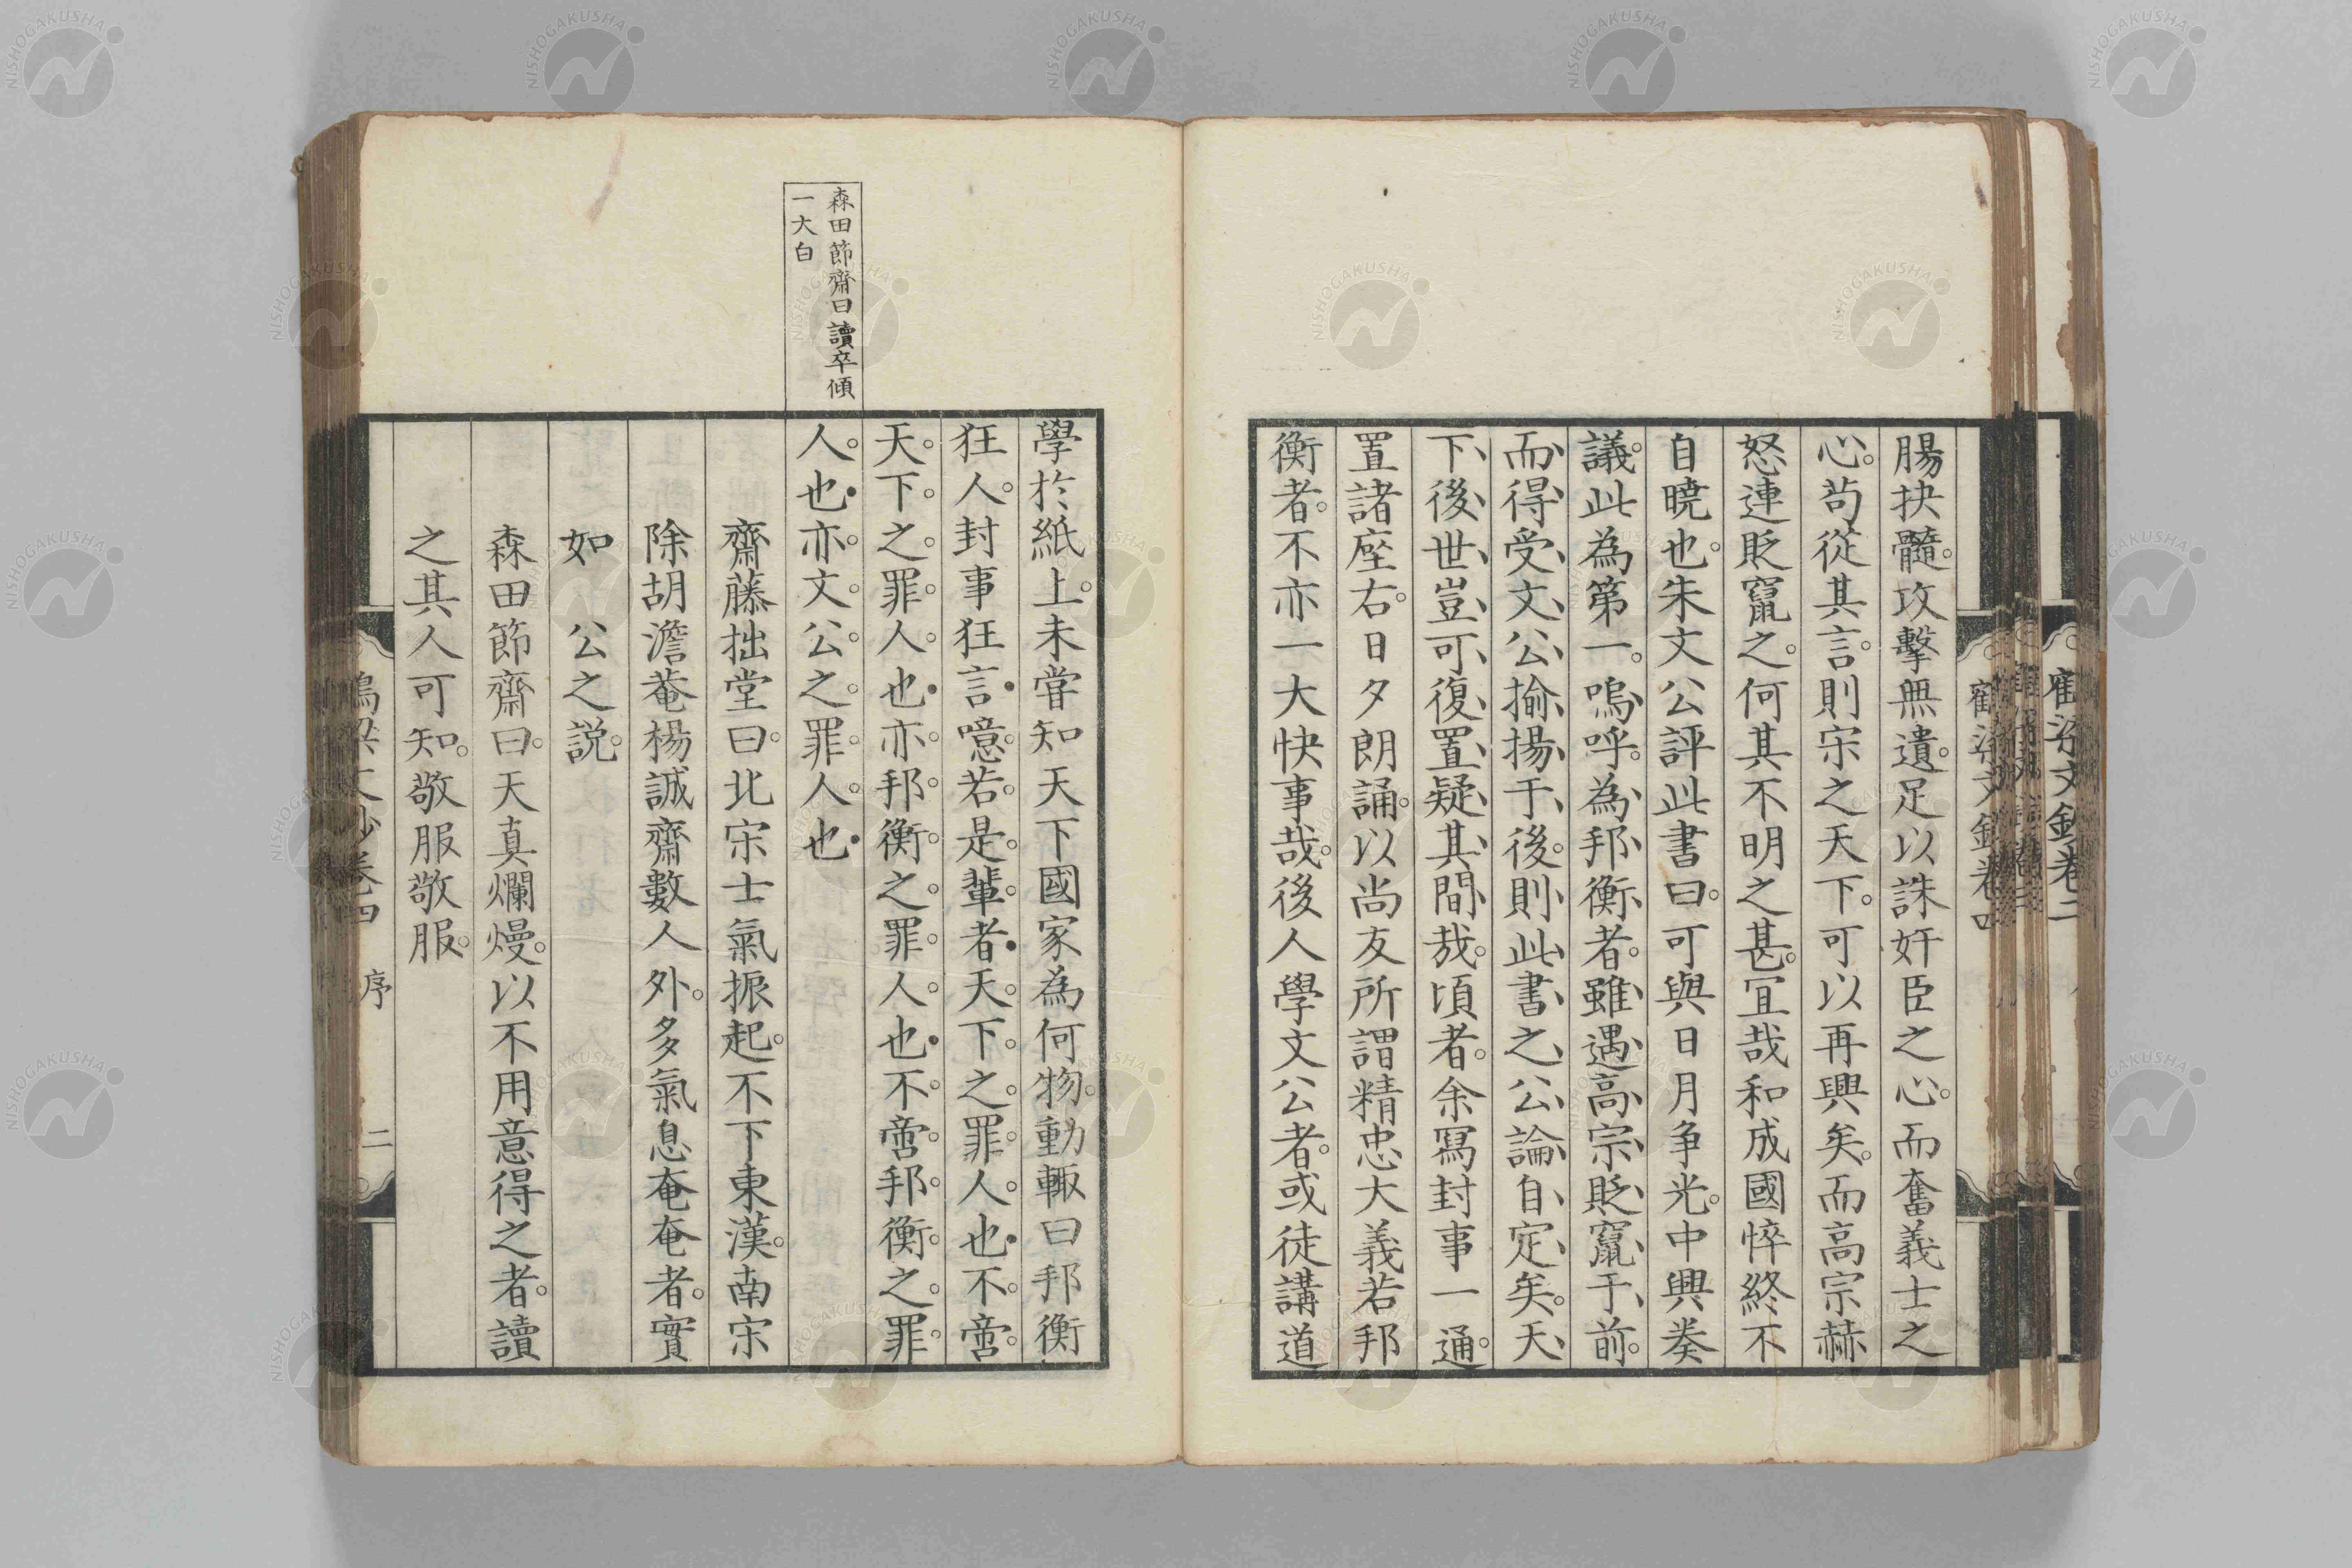 腸抉髓。攻擊無遺。足以誅奸臣之心。而奮義士之
心。苟從其言。則宋之天下。可以再興矣。而高宗赫
怒連貶竄之。何其不明之甚。冝哉和成國悴終不
自曉也。朱文公評此書曰。可與日月争光。中興奏
議。此為第一。嗚呼。為邦衡者。雖遇高宗貶竄于前。
而得受文公揄揚于後。則此書之公論自定矣。天
下後世豈可復置疑其間哉。頃者。余寫封事一通。
置諸座右。日夕朗誦。以尚友所謂精忠大義若邦
衡者。不亦一大快事哉。後人學文公者。或徒講道
學於紙上。未甞知天下國家為何物。動輙曰邦衡
狂人。封事狂言。噫。若是輩者。天下之罪人也。不啻
天下之罪人也。亦邦衡之罪人也。不啻邦衡之罪
人也。亦文公之罪人也
森田節齋曰讀卒傾
一大白
齋藤拙堂曰。北宋士氣振起。不下東漢。南宋
除胡澹菴楊誠齋數人外。多氣息奄奄者。實
如公之説。
森田節齋曰。天真爛熳。以不用意得之者。讀
之其人可知。敬服敬服。
鶴梁文鈔卷四 序 二
鶴梁文鈔卷四
鶴梁文鈔卷二
NISHOGAKUSHA